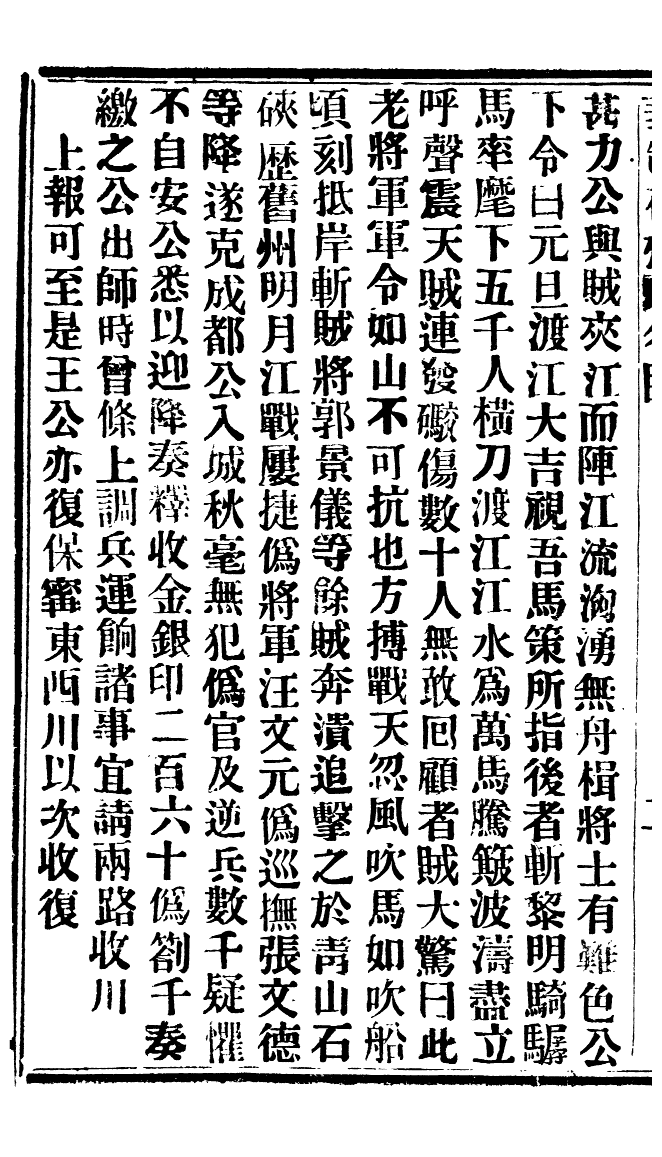 甚力公與賊夾江而陣江流洶湧無舟楫將士有難色公
下令曰元旦渡江大吉視吾馬策所指後者斬黎明騎驏
馬率麾下五千人橫刀渡江江水為萬馬騰簸波濤盡立
呼聲震天賊連發礮傷數十人無敢回顧者賊大驚曰此
老將軍軍令如山不可抗也方搏戰天忽風吹馬如吹船
頃刻抵岸斬賊將郭景儀等餘賊奔潰追擊之於青山石
硤歷舊州明月江戰屢捷偽將軍汪文元偽巡撫張文德
等降遂克成都公入城秋毫無犯偽官及逆兵數千疑懼
不自安公悉以迎降奏釋收金銀印二百六十偽劄千奏
繳之公出師時曾條上調兵運餉諸事宜請兩路收川
上報可至是王公亦復保寧東西川以次收復